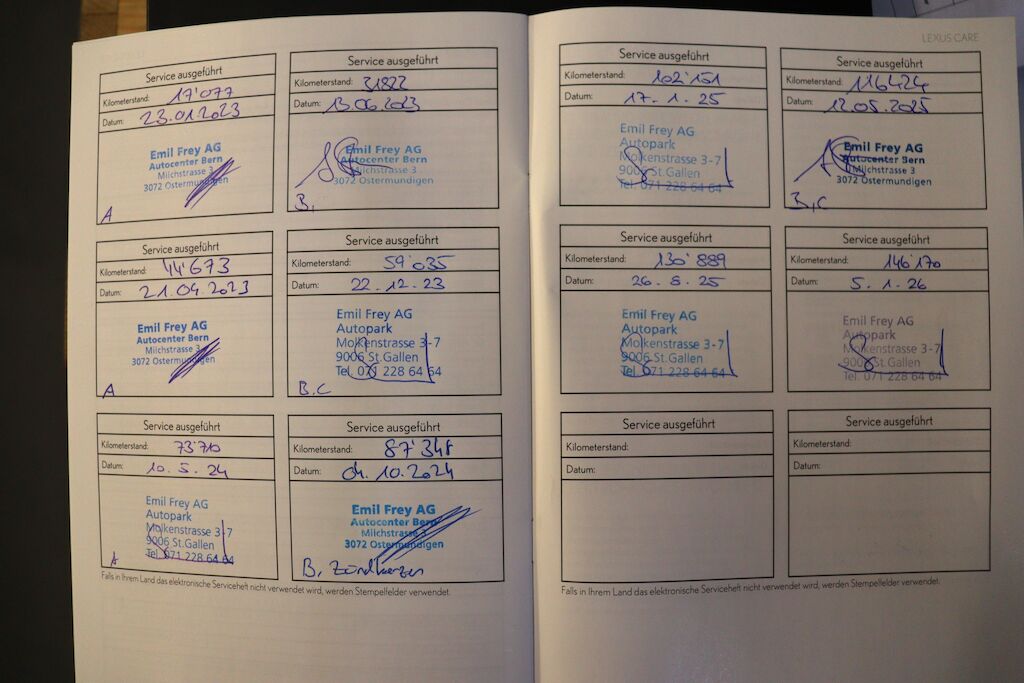 Service ausgeführt
Kilometerstand: 17'077
Datum: 23.01.2023
Emil Frey AG
Autocenter Bern
Milchstrasse 3
3072 Ostermundigen
A
Service ausgeführt
Kilometerstand: 31822
Datum: 13.06.2023
Emil Frey AG
Autocenter Bern
Milchstrasse 3
3072 Ostermundigen
B,
Service ausgeführt
Kilometerstand: 44'673
Datum: 21.09.2023
Emil Frey AG
Autocenter Bern
Milchstrasse 3
3072 Ostermundigen
A
Service ausgeführt
Kilometerstand: 59'035
Datum: 22.12.23
Emil Frey AG
Autopark
Molkenstrasse 3-7
9006 St.Gallen
Tel. 071 228 64 64
B,C
Service ausgeführt
Kilometerstand: 73'710
Datum: 10.5.24
Emil Frey AG
Autopark
Molkenstrasse 3-7
9006 St.Gallen
Tel. 071 228 64 64
A
Service ausgeführt
Kilometerstand: 87'348
Datum: 04.10.2024
Emil Frey AG
Autocenter Bern
Milchstrasse 3
3072 Ostermundigen
B, Zündkerzen
Falls in Ihrem Land das elektronische Serviceheft nicht verwendet wird, werden Stempelfelder verwendet.
LEXUS CARE
Service ausgeführt
Kilometerstand: 102'151
Datum: 17.1.25
Emil Frey AG
Autopark
Molkenstrasse 3-7
9006 St.Gallen
Tel. 071 228 64 64
Service ausgeführt
Kilometerstand: 116424
Datum: 12.05.2025
Emil Frey AG
Autocenter Bern
Milchstrasse 3
3072 Ostermundigen
B,C
Service ausgeführt
Kilometerstand: 130'889
Datum: 26.8.25
Emil Frey AG
Autopark
Molkenstrasse 3-7
9006 St.Gallen
Tel. 071 228 64 64
Service ausgeführt
Kilometerstand: 146'170
Datum: 5.1.26
Emil Frey AG
Autopark
Molkenstrasse 3-7
9006 St.Gallen
Tel. 071 228 64 64
Service ausgeführt
Kilometerstand:
Datum:
Service ausgeführt
Kilometerstand:
Datum:
Falls in Ihrem Land das elektronische Serviceheft nicht verwendet wird, werden Stempelfelder verwendet.